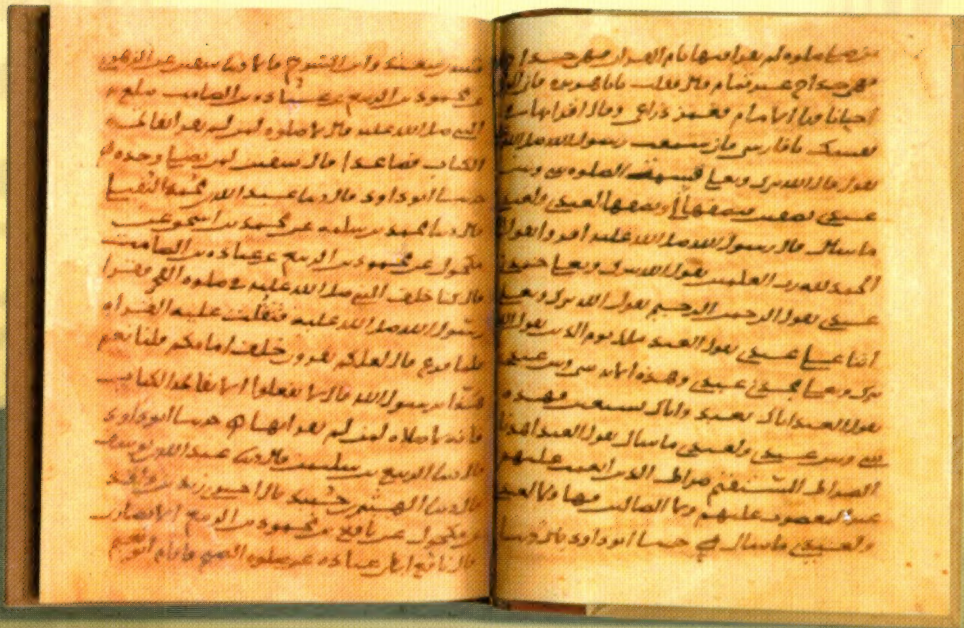 من صلى صلوه لم يقرا فيها بام القران فهى خداج
فهى خداج غير تمام قال فقلت يابا هريره فانى اكون
احيانا ورا الامام فغمز ذراعى وقال اقرا بها فى
نفسك يا فارسى فانى سمعت رسول الله صلى الله
يقول قال الله تبرك وتعلى قسمت الصلوه بينى وبين
عبدى نصفين فنصفها لى ونصفها لعبدى ولعبدى
ما سال قال رسول الله صلى الله عليه اقروا يقول
الحمد لله رب العلمين يقول الله تبرك وتعلى حمدنى
عبدى يقول الرحمن الرحيم يقول الله تبرك وتعلى
اثنا على عبدى يقول العبد ملك يوم الدين يقول الله
تبرك وتعلى مجدنى عبدى وهذه الايه بينى وبين عبدى
يقول العبد اياك نعبد واياك نستعين فهذه
بينى وبين عبدى ولعبدى ما سال يقول العبد اهدنا
الصراط المستقيم صراط الذين انعمت عليهم
غير المغضوب عليهم ولا الضالين فهاولا لعبدى
ولعبدى ما سال حدثنا ابو داود قال حدثنا
قتيبه بن سعيد وابن السرح قالا حدثنا سفين عن الزهرى
عن محمود بن الربيع عن عباده بن الصامت يبلغ به
النبى صلى الله عليه قال لا صلوه لمن لم يقرا بفاتحه
الكتاب فصاعدا قال سفين لمن يصلى وحده
حدثنا ابو داود قال حدثنا عبد الله بن محمد النفيلى
قال حدثنا محمد بن سلمه عن محمد بن اسحق عن
مكحول عن محمود بن الربيع عن عباده بن الصامت
قال كنا خلف النبى صلى الله عليه فى صلوه الفجر فقرا
رسول الله صلى الله عليه فثقلت عليه القراه
فلما فرغ قال لعلكم تقرون خلف امامكم قلنا نعم
هذا يرسول الله قال لا تفعلوا الا بفاتحه الكتاب
فانه لا صلاه لمن لم يقرا بها حدثنا ابو داود
قال حدثنا الربيع بن سليمن قال حدثنا عبد الله بن يوسف
قال حدثنا الهيثم بن حميد قال اخبرنى زيد بن واقد
عن مكحول عن نافع بن محمود بن الربيع الانصارى
قال نافع ابطا عباده عن صلوه الصبح فاقام ابو نعيم